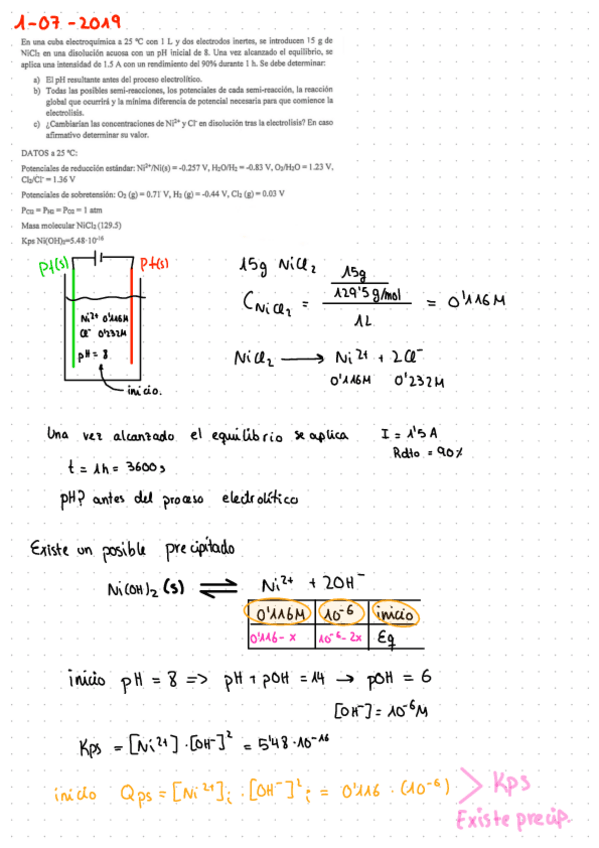 1-07-2019
En una cuba electroquímica a 25 ºC con 1 L y dos electrodos inertes, se introducen 15 g de
NiCl₂ en una disolución acuosa con un pH inicial de 8. Una vez alcanzado el equilibrio, se
aplica una intensidad de 1.5 A con un rendimiento del 90% durante 1 h. Se debe determinar:
a) El pH resultante antes del proceso electrolítico.
b) Todas las posibles semi-reacciones, los potenciales de cada semi-reacción, la reacción
global que ocurrirá y la mínima diferencia de potencial necesaria para que comience la
electrolisis.
c) ¿Cambiarían las concentraciones de Ni²⁺ y Cl⁻ en disolución tras la electrolisis? En caso
afirmativo determinar su valor.
DATOS a 25 ºC:
Potenciales de reducción estándar: Ni²⁺/Ni(s) = -0.257 V, H₂O/H₂ = -0.83 V, O₂/H₂O = 1.23 V,
Cl₂/Cl⁻ = 1.36 V
Potenciales de sobretensión: O₂ (g) = 0.71 V, H₂ (g) = -0.44 V, Cl₂ (g) = 0.03 V
P_Cl2 = P_H2 = P_O2 = 1 atm
Masa molecular NiCl₂ (129.5)
Kps Ni(OH)₂=5.48·10⁻¹⁶
Pt(s) Pt(s)
Ni²⁺ 0'116M
Cl⁻ 0'232M
pH = 8
inicio.
15g NiCl₂
C NiCl₂ = 15g / 129'5 g/mol / 1L = 0'116M
NiCl₂ ⟶ Ni²⁺ + 2Cl⁻
0'116M 0'232M
Una vez alcanzado el equilibrio se aplica I = 1'5 A
Rdto = 90%
t = 1h = 3600s
pH? antes del proceso electrolítico
Existe un posible precipitado
Ni(OH)₂ (s) ⇌ Ni²⁺ + 2OH⁻
0'116M 10⁻⁶ inicio
0'116-x 10⁻⁶-2x Eq
inicio pH = 8 => pH + pOH = 14 → pOH = 6
[OH⁻] = 10⁻⁶M
Kps = [Ni²⁺]·[OH⁻]² = 5'48·10⁻¹⁶
inicio Qps = [Ni²⁺]i · [OH⁻]²i = 0'116 · (10⁻⁶) > Kps
Existe precip.